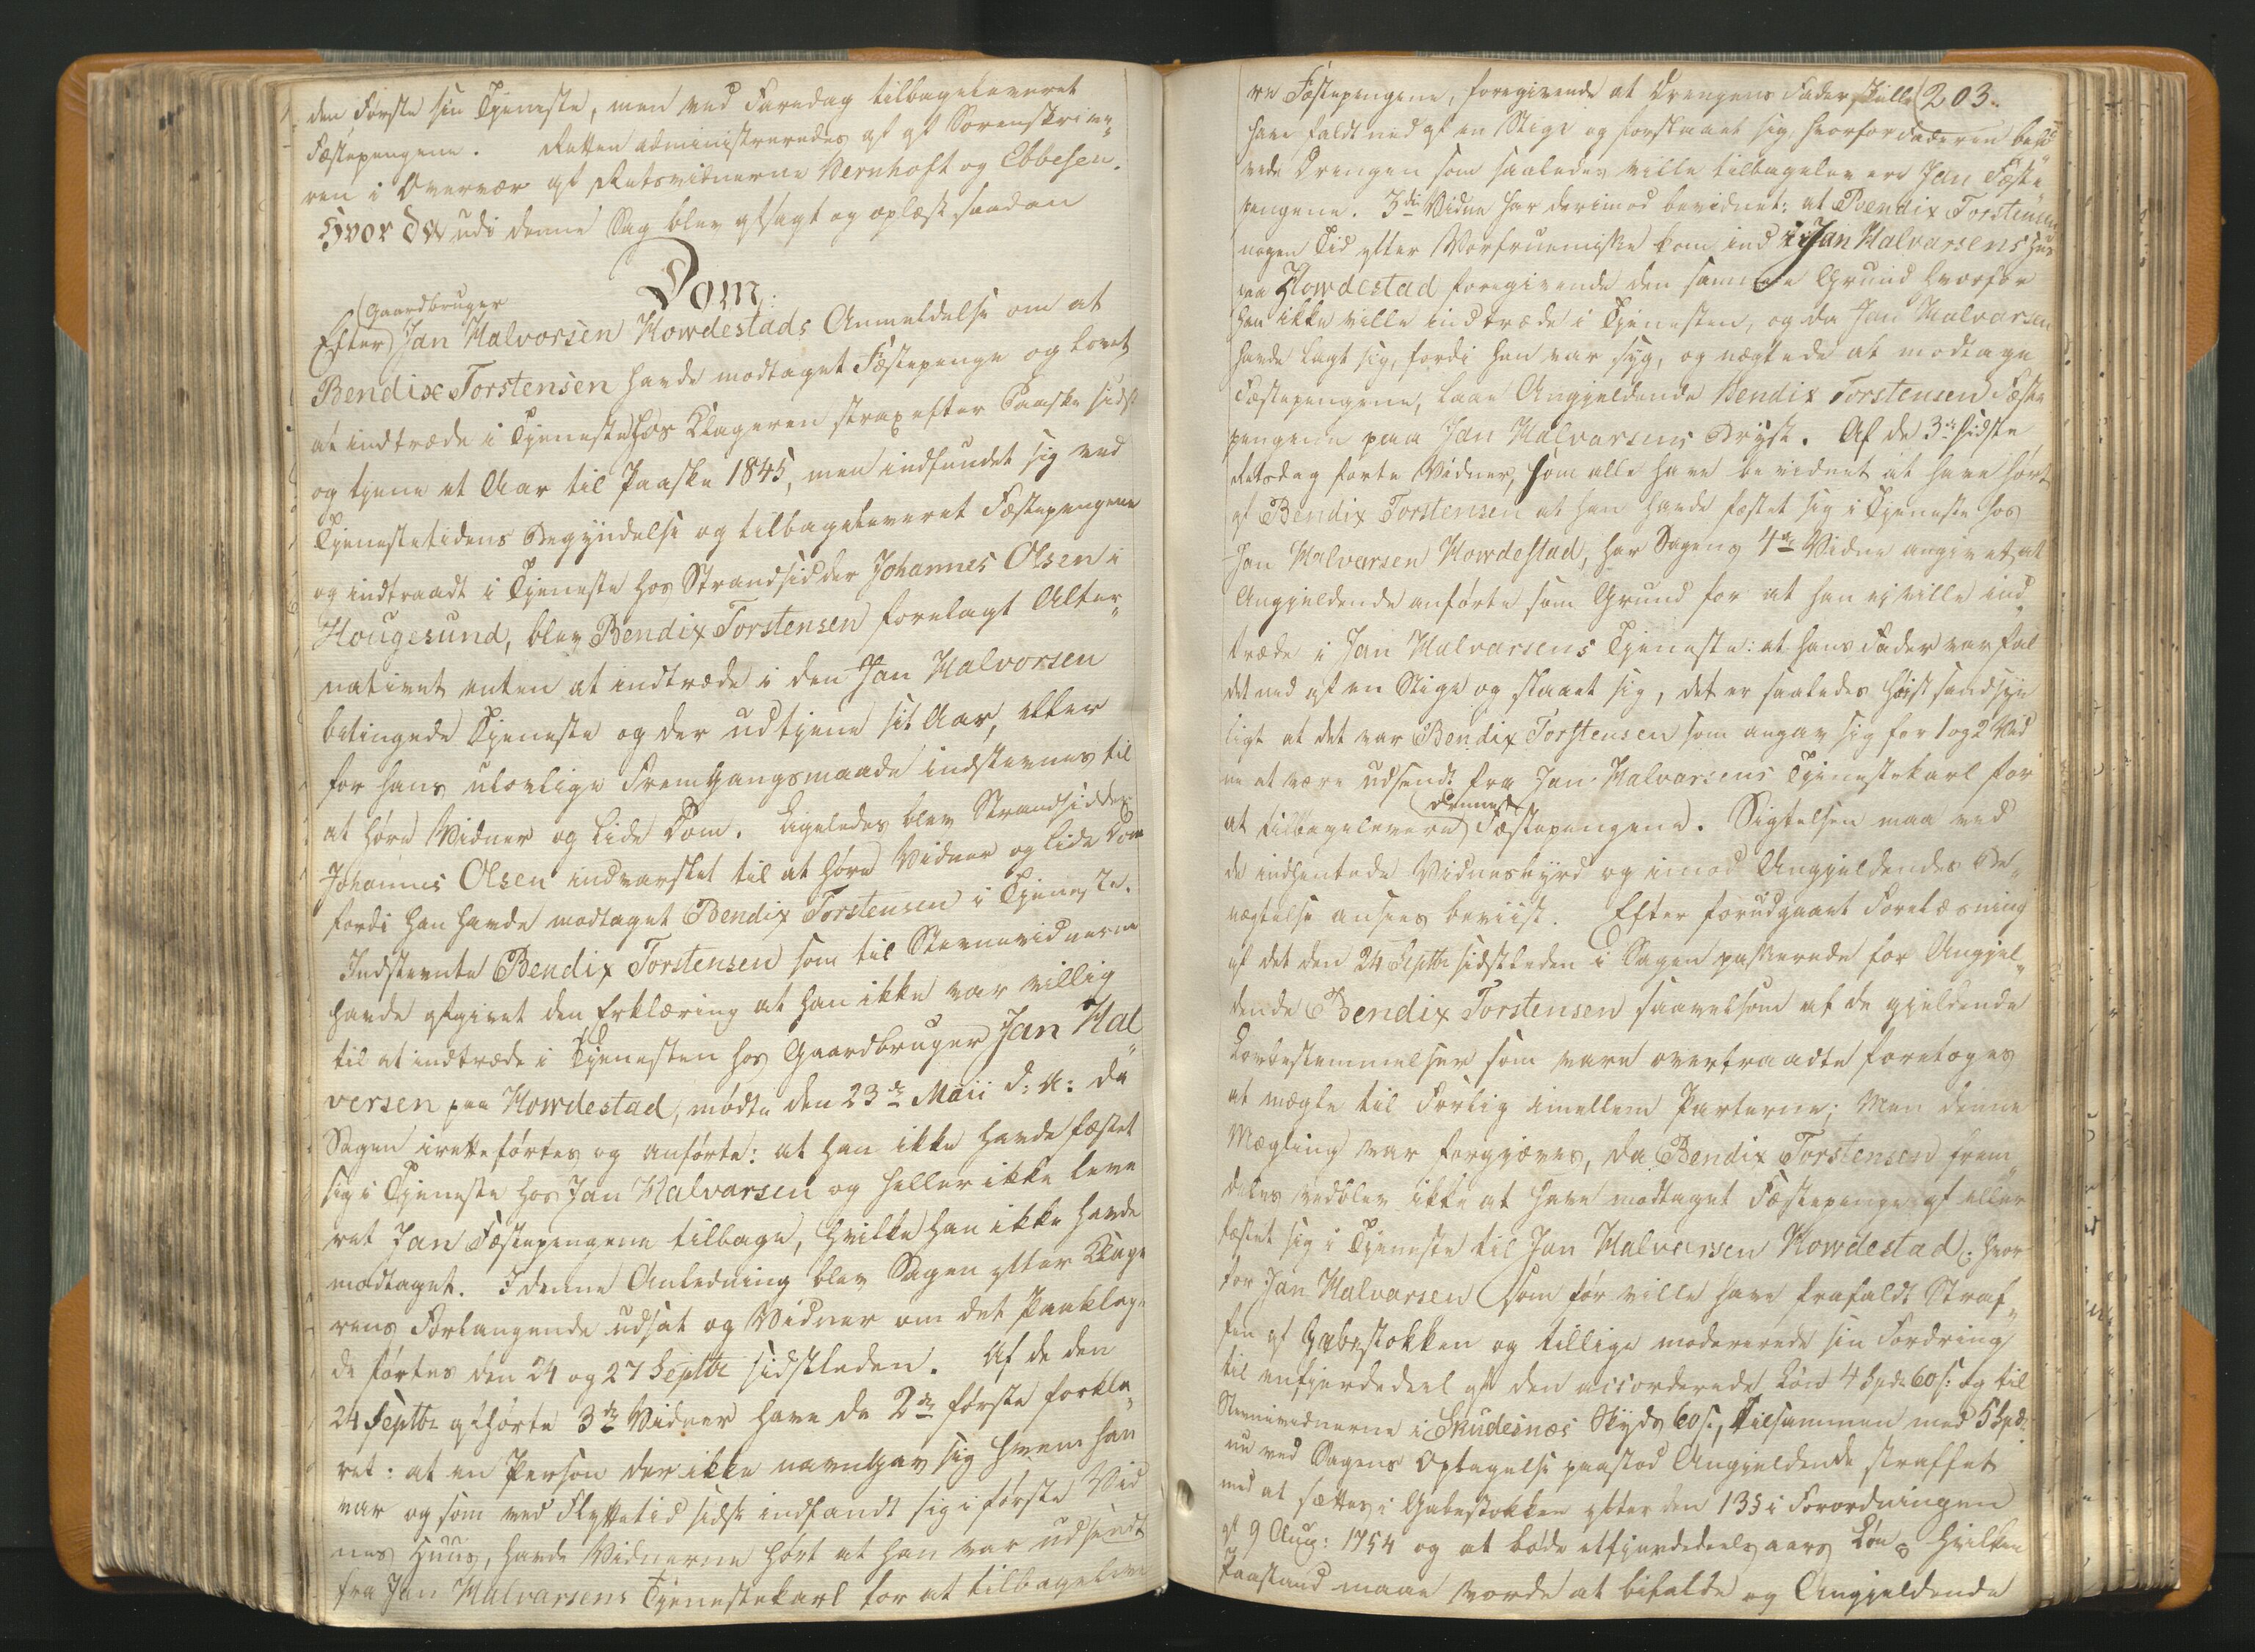 den Første sin Tjeneste, men ved Faredag tilbageleveret
Fæstepengene. Retten administreredes af gl Sorenskrive„
ren i Overvær af Retsvidnerne Vernhoft og Ebbesen.
Hvor da udi denne Sag blev afsagt og oplæst saadan
Dom:
Gaardbruger
Efter Jan Halvorsen Howdestads Anmeldelse om at
Bendix Torstensen havde modtaget Fæstepenge og lovet
at indtræde i Tjeneste hos Klageren strax efter Paaske sidst
og tjene et Aar til Paaske 1845, men indfundet sig ved
Tjenestetidens Begyndelse og tilbageleveret Fæstepengene
og indtraadt i Tjeneste hos Strandsidder Johannes Olsen i
Hougesund, blev Bendix Torstensen forelagt Alter„
nativet enten at indtræde i den Jan Halvorsen
betingede Tjeneste og der udtjene sit Aar, eller
for hans ulovlige Fremgangsmaade indstevnes til
at høre Vidner og lide Dom. Ligeledes blev Strandsidder
Johannes Olsen indvarslet til at høre Vidner og lide Dom
fordi han havde modtaget Bendix Torstensen i Tjeneste.
Indstevnte Bendix Torstensen som til Stevnevidnerne
havde afgivet den Erklæring at han ikke var villig
til at indtræde i Tjenesten hos Gaardbruger Jan Hal„
versen paa Howdestad, mødte den 23de Maii d: A: da
Sagen iretteførtes og anførte: at han ikke havde fæstet
sig i Tjeneste hos Jan Halvarsen og heller ikke leve
ret Jan Fæstepengene tilbage, hvilke han ikke havde
modtaget. I denne Anledning blev Sagen efter Klage
rens Forlangende udsat og Vidner om det Paaklage
de førtes den 24 og 27 Septbr sidstleden. Af de den
24 Septbr afhørte 3de Vidner have de 2de første forkla„
ret: at en Person der ikke navngav sig hvem han
var og som ved Flyttetid sidst indfandt sig i første Vid
nes Huus, havde Vidnerne hørt at han var udsendt
fra Jan Halvarsens Tjenestekarl for at tilbageleve
203.
re Fæstepengene, foregivende at Drengens Fader skulle
have faldt ned af en Stige og forslaaet sig, hvorfor Faderen behø
vede Drengen som saaledes ville tilbagelevere Jan Fæste„
pengene. 3die Vidne har derimod bevidnet: at Bendix Torstensen
nogen Tid efter Vorfruemisse kom ind i Jan Halvarsens Huus
paa Howdestad foregivende den samme Grund hvorfor
han ikke ville indtræde i Tjenesten, og da Jan Halvarsen
havde lagt sig, fordi han var syg, og nægtede at modtage
Fæstepengene, laae Angjeldende Bendix Torstensen Fæste
pengene paa Jan Halvarsens Bryst. Af de 3de sidste
Retsdag førte Vidner, som alle have bevidnet at have hørt
af Bendix Torstensen at han havde fæstet sig i Tjeneste hos
Jan Halvarsen Howdestad, har Sagens 4de Vidne angivet, at
Angjeldende anførte som Grund for at han ej ville ind„
træde i Jan Halvarsens Tjeneste: at hans Fader var fal
det ned af en Stige og slaaet sig, det er saaledes høist sandsyn
ligt at det var Bendix Torstensen som angav sig for 1 og 2 Vid
ne at være udsendt fra Jan Halvarsens Tjenestekarl for
at tilbagelevere Fæstepengene. Sigtelsen maa ved
de indhentede Vidnesbyrd og imod Angjeldendes Be„
nægtelse ansees beviist. Efter forudgaaet Forelæsning
af det den 24 Septbr sidstleden i Sagen passerede for Angjel„
dende Bendix Torstensen saavelsom af de gjeldende
Lovbestemmelser som vare overtraadte foretoges
at mægle til Forlig imellem Parterne; Men denne
Mægling var forgjæves, da Bendix Torstensen frem„
deles vedblev ikke at have modtaget Fæstepenge af eller
fæstet sig i Tjeneste til Jan Halvarsen Howdestad; hvor
for Jan Halvarsen som før ville have frafaldt Straf„
fen af Gabestokken og tillige modererede sin Fordring
til enfjerdedeel af den accorderede Løn 4 Spd. 60 s: og til
Stevnevidnerne i Skudesnæs Skyds 60 s:, tilsammen med 5 Spd:
nu ved Sagens Optagelse paastod Angjeldende straffet
med at sættes i Gabestokken efter den 13 § i Forordningen
af 9 Aug: 1754 og at bøde etfjerdedeels aars Løn. Hvilken
Paastand maae vorde at bifalde og Angjeldende